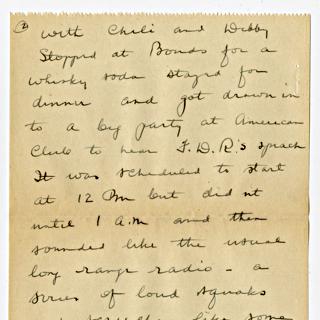 ② with Chili and Debby
Stopped at Bonds for a
whisky soda stayed for
dinner and got drawn in
to a big party at American
Club to hear F.D.R.'s speach
It was scheduled to start
at 12 Pm but did nt
until 1 A.m and then
sounded like the usual
long range radio - a
series of loud squaks
like some